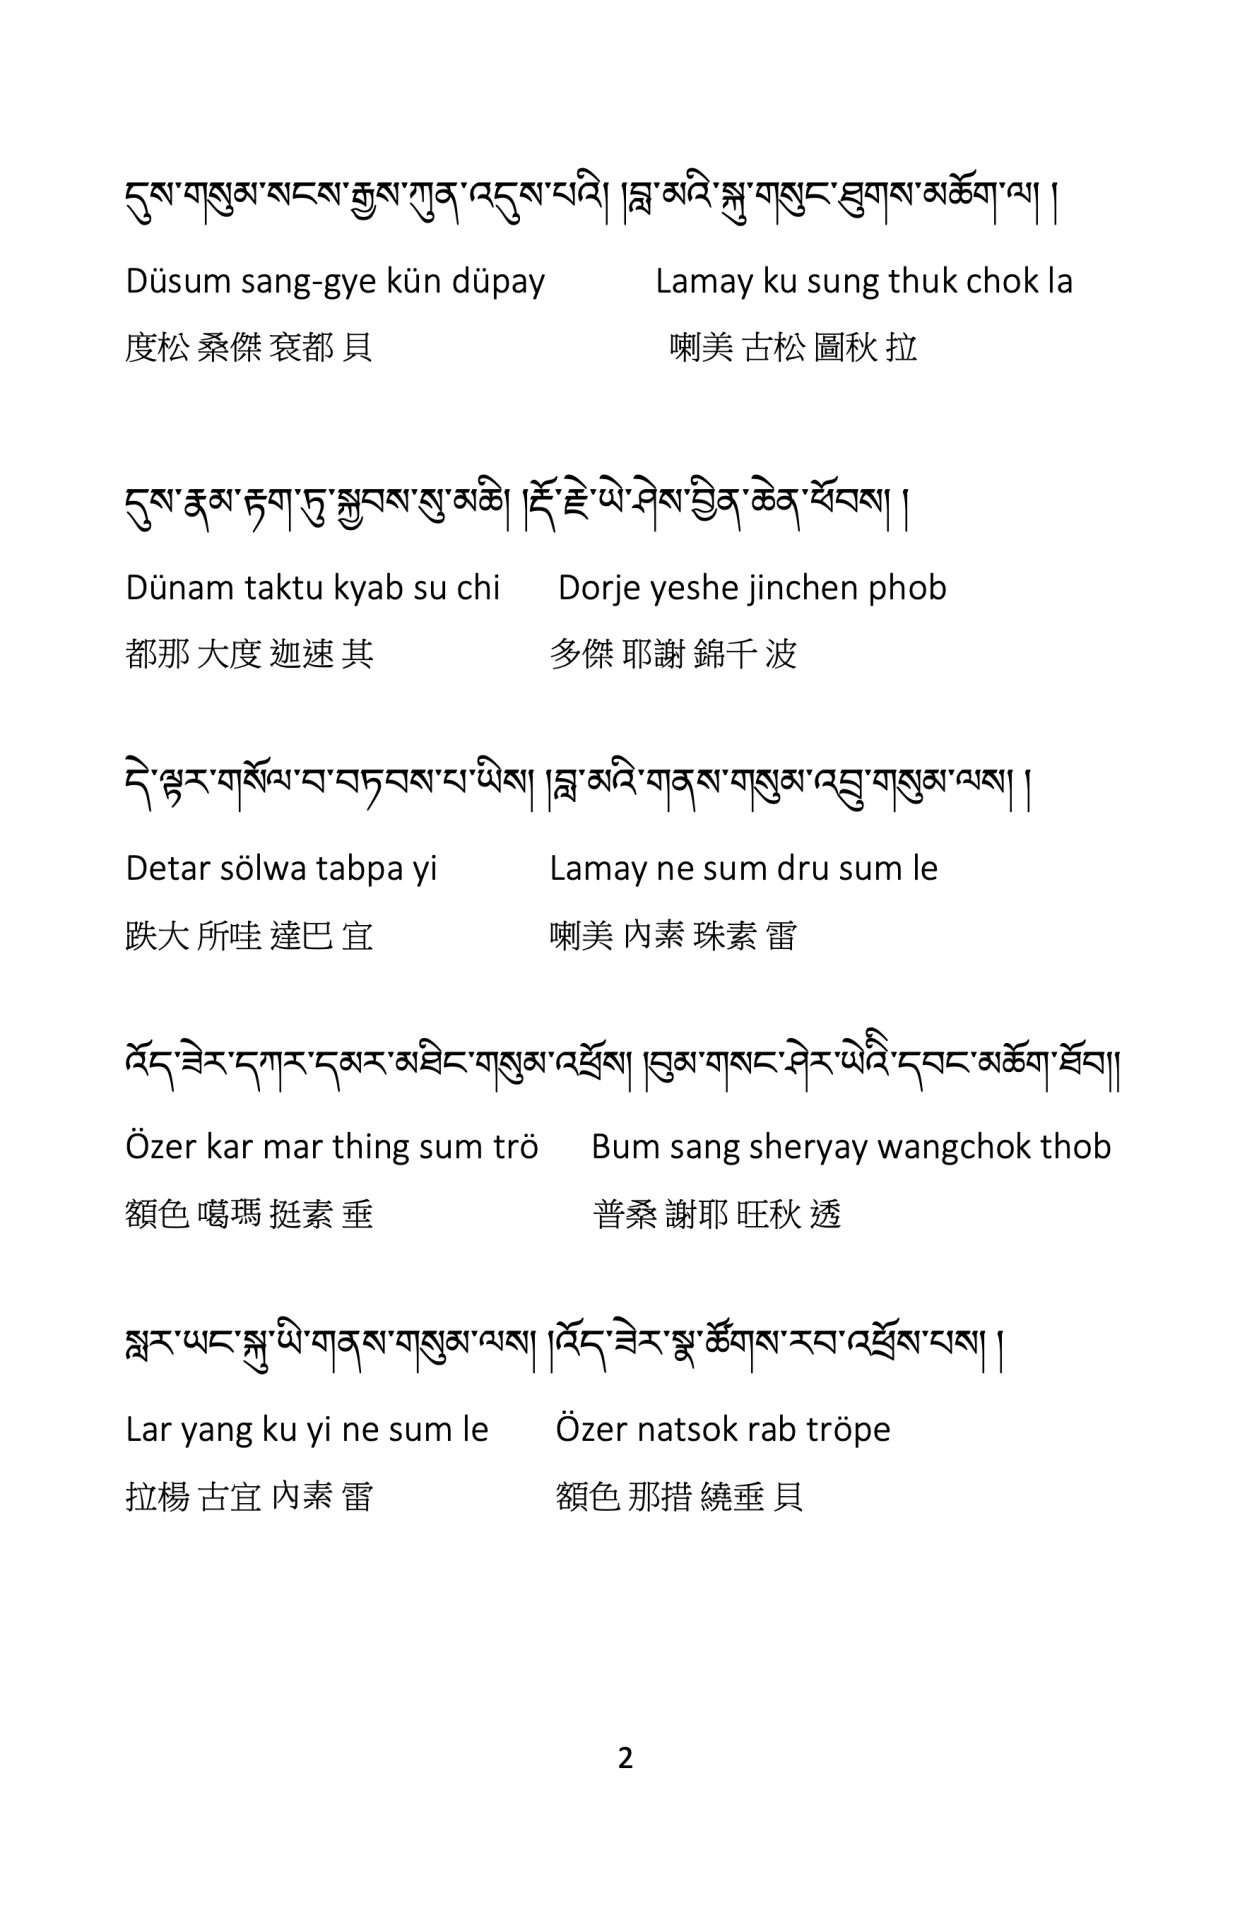 དུས་གསུམ་སངས་རྒྱས་ཀུན་འདུས་པའི། །བླ་མའི་སྐུ་གསུང་ཐུགས་མཆོག་ལ། །
Düsum sang-gye kün düpay Lamay ku sung thuk chok la
度松 桑傑 袞都 貝 喇美 古松 圖秋 拉
དུས་རྣམ་རྟག་ཏུ་སྐྱབས་སུ་མཆི། །རྡོ་རྗེ་ཡེ་ཤེས་བྱིན་ཆེན་ཕོབས། །
Dünam taktu kyab su chi Dorje yeshe jinchen phob
都那 大度 迦速 其 多傑 耶謝 錦千 波
དེ་ལྟར་གསོལ་བ་བཏབས་པ་ཡིས། །བླ་མའི་གནས་གསུམ་འབྲུ་གསུམ་ལས། །
Detar sölwa tabpa yi Lamay ne sum dru sum le
跌大 所哇 達巴 宜 喇美 內素 珠素 雷
འོད་ཟེར་དཀར་དམར་མཐིང་གསུམ་འཕྲོས། །བུམ་གསང་ཤེར་ཡེའི་དབང་མཆོག་ཐོབ།།
Özer kar mar thing sum trö Bum sang sheryay wangchok thob
額色 噶瑪 挺素 垂 普桑 謝耶 旺秋 透
སླར་ཡང་སྐུ་ཡི་གནས་གསུམ་ལས། །འོད་ཟེར་སྣ་ཚོགས་རབ་འཕྲོས་པས། །
Lar yang ku yi ne sum le Özer natsok rab tröpe
拉楊 古宜 內素 雷 額色 那措 繞垂 貝
2